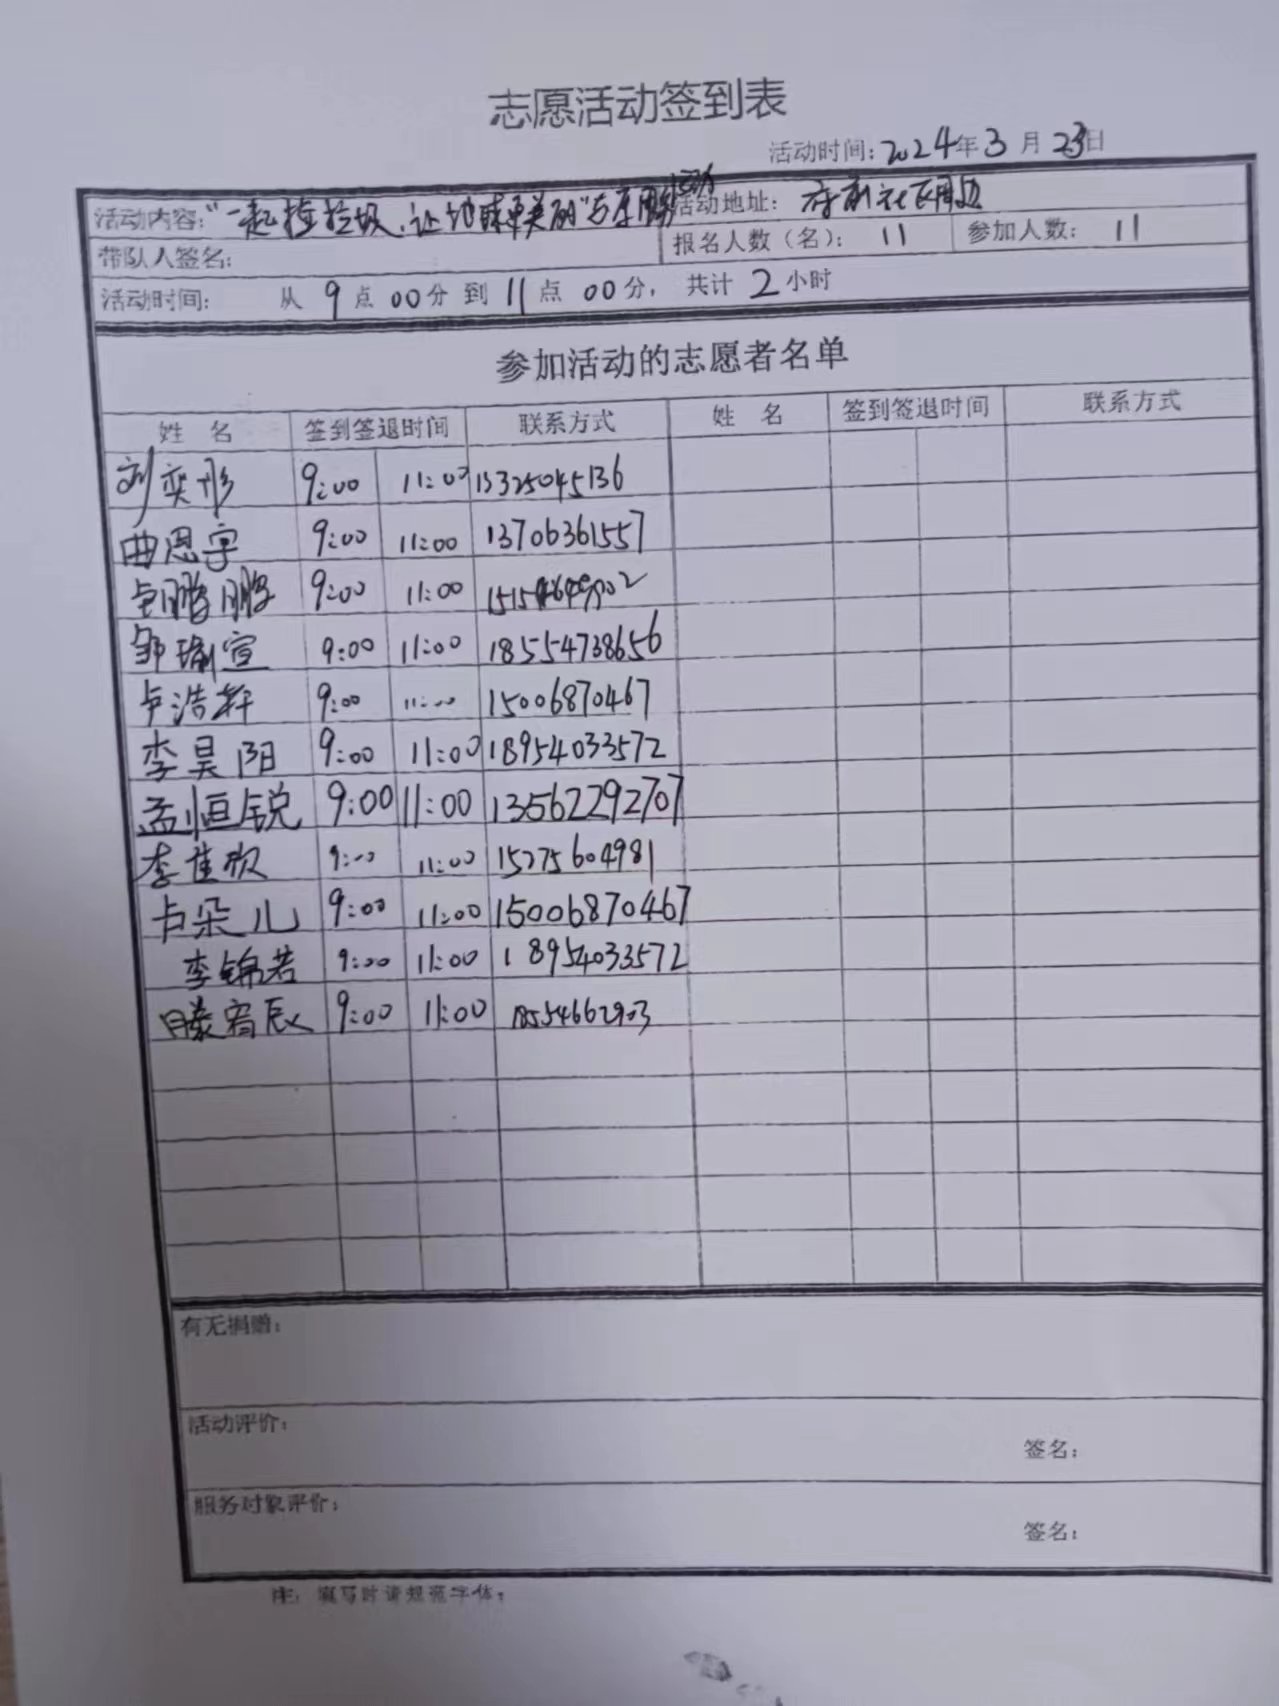 志愿活动签到表
活动时间:2024年3月23日
活动内容:"一起捡垃圾,让地球更美丽"志愿服务活动 活动地址: 府新社区周边
带队人签名: 报名人数(名): 11 参加人数: 11
活动时间: 从 9 点 00分 到 11 点 00分, 共计 2 小时
参加活动的志愿者名单
姓 名 签到签退时间 联系方式 姓 名 签到签退时间 联系方式
刘奕彤 9:00 11:00 13325045136
曲恩宇 9:00 11:00 13706361557
鹏鹏 9:00 11:00
邹瑜宣 9:00 11:00 18554738656
卢浩轩 9:00 11:00 15006870467
李昊阳 9:00 11:00 18954033572
孟恒锐 9:00 11:00 13562292707
李佳欣 9:00 11:00 15275604981
卢朵儿 9:00 11:00 15006870467
李锦若 9:00 11:00 18954033572
滕宥辰 9:00 11:00 18554662903
有无捐赠:
活动评价:
签名:
服务对象评价:
签名:
注: 填写时请规范字体;